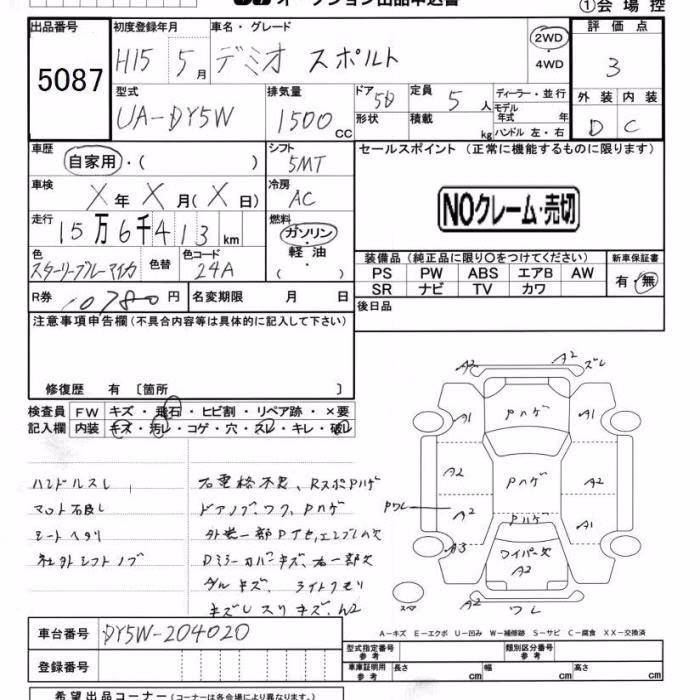 ①会場控
出品番号 初度登録年月 車名・グレード 評価点
5087 H15 5月 デミオ スポルト 2WD ・4WD 3
型式 排気量 ドア 5D 定員 5人 ディーラー・並行 外装 内装
UA-DY5W 1500cc 形状 積載 kg モデル年式 年 ハンドル 左・右 D C
車歴 シフト セールスポイント (正常に機能するものに限ります)
自家用・( ) 5MT
車検 X年X月(X日) 冷房 AC NOクレーム・売切
走行 15万6千413km 燃料 ガソリン・軽油・( )
色 スターリーブルーマイカ 色替 色コード 24A
装備品 (純正品に限り○をつけてください) 新車保証書
PS PW ABS エアB AW 有・無
SR ナビ TV カワ
R券 10780円 名変期限 月 日 後日品
注意事項申告欄 (不具合内容等は具体的に記入して下さい)
修復歴 有 〔箇所 〕
検査員 FW キズ・飛石・ヒビ割・リペア跡・×要
記入欄 内装 キズ・汚レ・コゲ・穴・スレ・キレ・破レ
ハンドルスレ
シートヘタリ
社外シフトノブ
ドアノブ、ワク、Pハゲ
ライトクモリ
A2 A2 ズレ
A1 Pハゲ A1
A2 Pハゲ A2
Pワレ A2 Pハゲ A1
A3 ワイパー欠 A2
A2 ワレ
A-キズ E-エクボ U-凹み W-補修跡 S-サビ C-腐食 XX-交換済
車台番号 DY5W-204020
型式指定番号 参考 類別区分番号 参考
登録番号 車庫証明用 参考 長さ cm 幅 cm 高さ cm
希望出品コーナー (コーナーは各会場により異なります。)